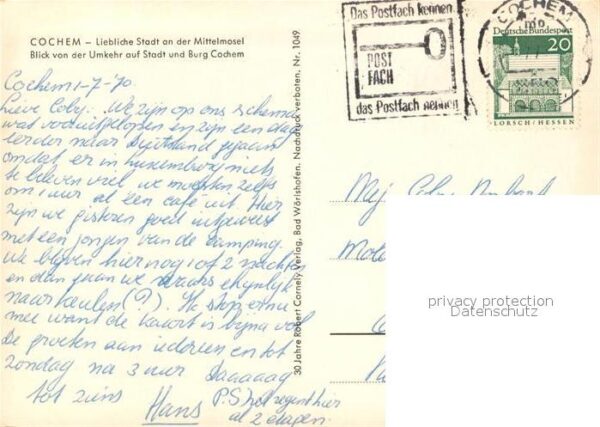 COCHEM – Liebliche Stadt an der Mittelmosel
Blick von der Umkehr auf Stadt und Burg Cochem
Cochem 1-7-70
Lieve Coby: We zijn op ons schema
wat vooruitgelopen en zijn een dag
eerder naar Duitsland gegaan
omdat er in Luxemburg niets
te beleven viel we moesten zelfs
om 1 uur al een café uit. Hier
zijn we gisteren goed uitgeweest
met een jongen van de camping.
We blijven hier nog 1 of 2 nachten
en dan gaan we
naar Keulen (?). Ik stop ermee
mee want de kaart is bijna vol
De groeten aan iedereen en tot
Zondag na 3 uur Daaaaag
tot ziens
Hans
P.S. het regent hier
al 2 dagen.
30 Jahre Robert Cornely Verlag, Bad Wörishofen, Nachdruck verboten, Nr. 1049
Das Postfach kennen
POST
FACH
das Postfach nennen
COCHEM
Deutsche Bundespost
20
LORSCH/HESSEN
Mej. Coby
privacy protection
Datenschutz